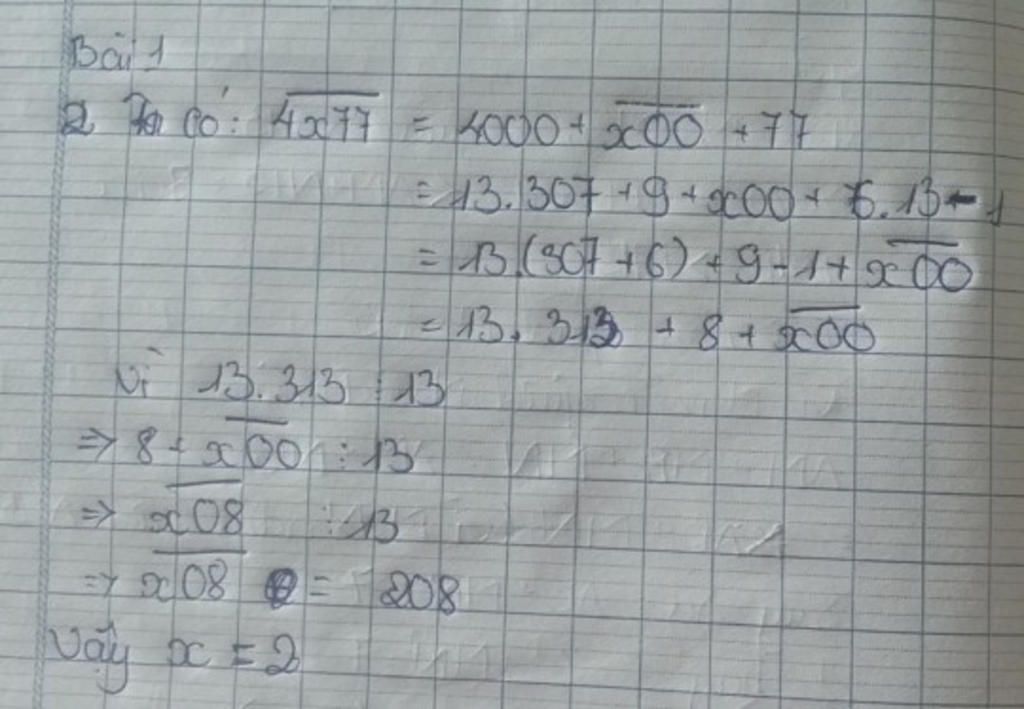 Bài 1
2 Ta có: 4x77 = 4000 + x00 + 77
= 13.307 + 9 + x00 + 6.13 - 1
= 13.(307 + 6) + 9 - 1 + x00
= 13. 313 + 8 + x00
Vì 13.313 ⋮ 13
=> 8 + x00 ⋮ 13
=> x08 ⋮ 13
=> x08 = 208
Vậy x = 2